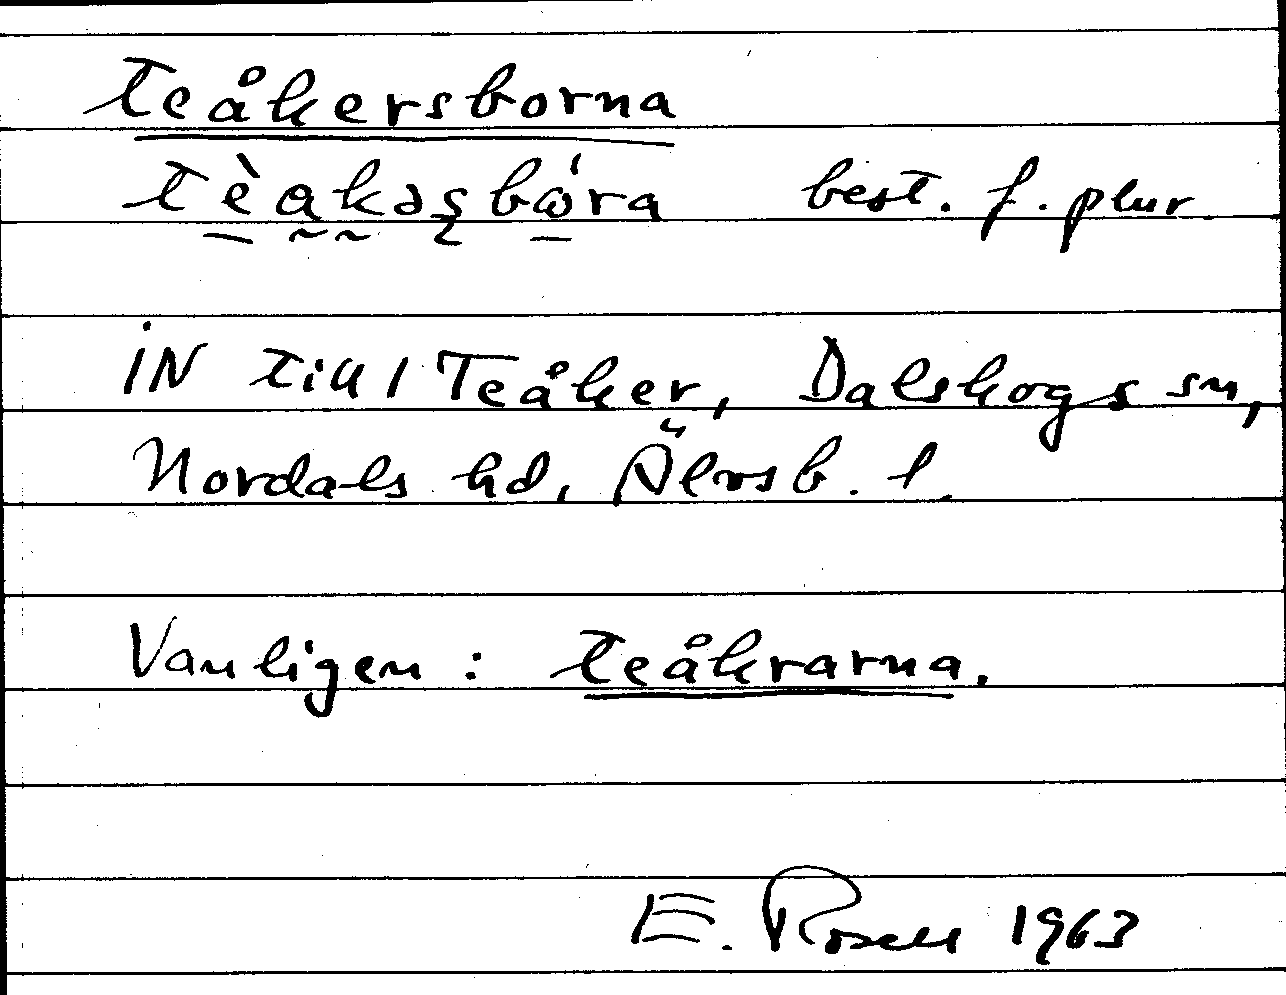 teåkersborna
tèakəʂbω̇ra best. f. plur.
iN till Teåker, Dalskogs sn,
Nordals hd, Älvsb. l.
Vanligen: teåkrarna.
E. Rosell 1963